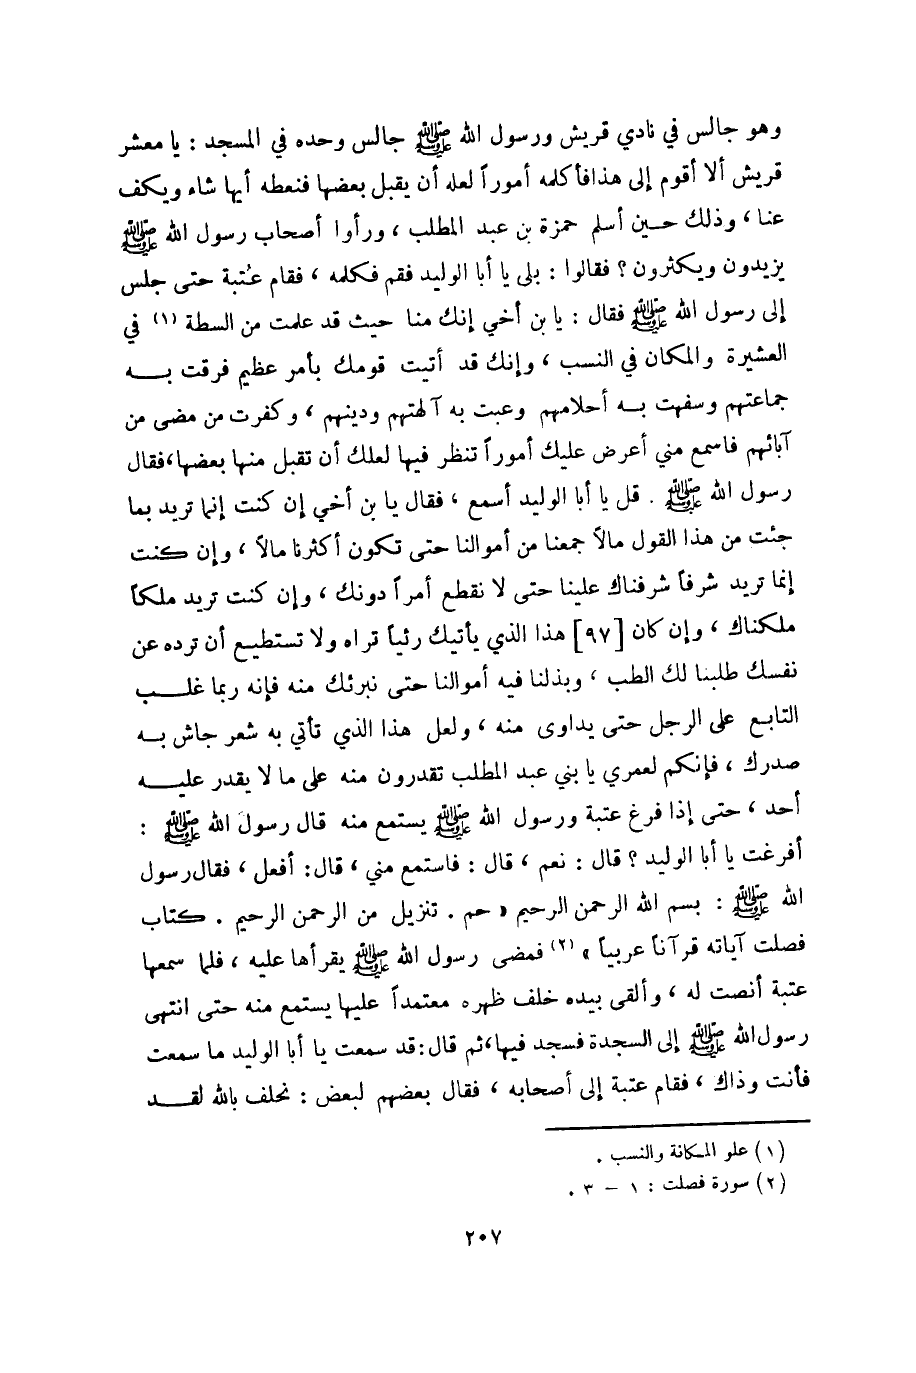 وهو جالس في نادي قريش ورسول الله ﷺ جالس وحده في المسجد : يا معشر
قريش ألا أقوم إلى هذا فأكلمه أموراً لعله أن يقبل بعضها فنعطه أيها شاء ويكف
عنا ، وذلك حين أسلم حمزة بن عبد المطلب ، ورأوا أصحاب رسول الله ﷺ
يزيدون ويكثرون ؟ فقالوا : بلى يا أبا الوليد فقم فكلمه ، فقام عُتبة حتى جلس
إلى رسول الله ﷺ فقال : يا بن أخي إنك منا حيث قد علمت من السطة (١) في
العشيرة والمكان في النسب ، وإنك قد أتيت قومك بأمر عظيم فرقت به
جماعتهم وسفهت به أحلامهم وعبت به آلهتهم ودينهم ، وكفرت من مضى من
آبائهم فاسمع مني أعرض عليك أموراً تنظر فيها لعلك أن تقبل منها بعضها ، فقال
رسول الله ﷺ . قل يا أبا الوليد أسمع ، فقال يا بن أخي إن كنت إنما تريد بما
جئت من هذا القول مالاً جمعنا من أموالنا حتى تكون أكثرنا مالاً ، وإن كنت
إنما تريد شرفاً شرفناك علينا حتى لا نقطع أمراً دونك ، وإن كنت تريد ملكاً
ملكناك ، وإن كان [٩٧] هذا الذي يأتيك رئياً تراه ولا تستطيع أن ترده عن
نفسك طلبنا لك الطب ، وبذلنا فيه أموالنا حتى نبرئك منه فإنه ربما غلب
التابع على الرجل حتى يداوى منه ، ولعل هذا الذي تأتي به شعر جاش به
صدرك ، فإنكم لعمري يا بني عبد المطلب تقدرون منه على ما لا يقدر عليه
أحد ، حتى إذا فرغ عتبة ورسول الله ﷺ يستمع منه قال رسولَ الله ﷺ :
أفرغت يا أبا الوليد ؟ قال : نعم ، قال : فاستمع مني ، قال : أفعل ، فقال رسول
الله ﷺ : بسم الله الرحمن الرحيم « حم . تنزيل من الرحمن الرحيم . كتاب
فصلت آياته قرآناً عربياً » (٢) فمضى رسول الله ﷺ يقرأها عليه ، فلما سمعها
عتبة أنصت له ، وألقى بيده خلف ظهره معتمداً عليها يستمع منه حتى انتهى
رسول الله ﷺ إلى السجدة فسجد فيها ، ثم قال : قد سمعت يا أبا الوليد ما سمعت
فأنت وذاك ، فقام عتبة إلى أصحابه ، فقال بعضهم لبعض : نحلف بالله لقد
(١) علو المكانة والنسب .
(٢) سورة فصلت : ١ - ٣ .
٢٠٧